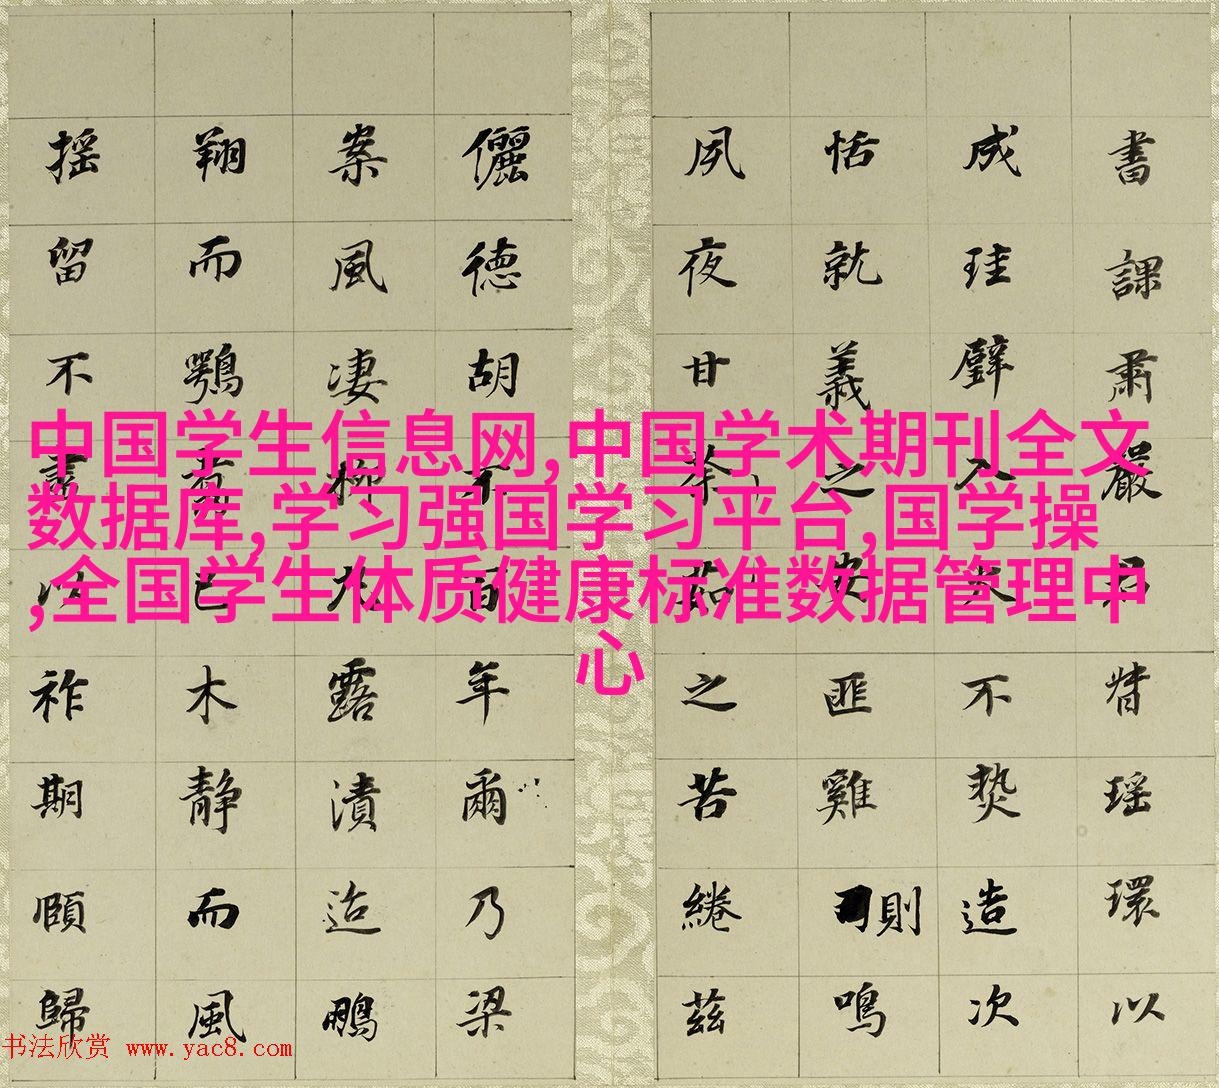 中国学生信息网,中国学术期刊全文
数据库,学习强国学习平台,国学操
,全国学生体质健康标准数据管理中
心
書課肅嚴瑶環以
成珪璧入不造次
恬就義之安匪雞則鳴
夙夜甘荼茹之苦綣茲
儷德胡不百年爾乃梁
案風凄柳露漬迨鵬
翔而鶚已木靜而風
摇留不以祚期頤歸
书法欣赏 www.yac8.com